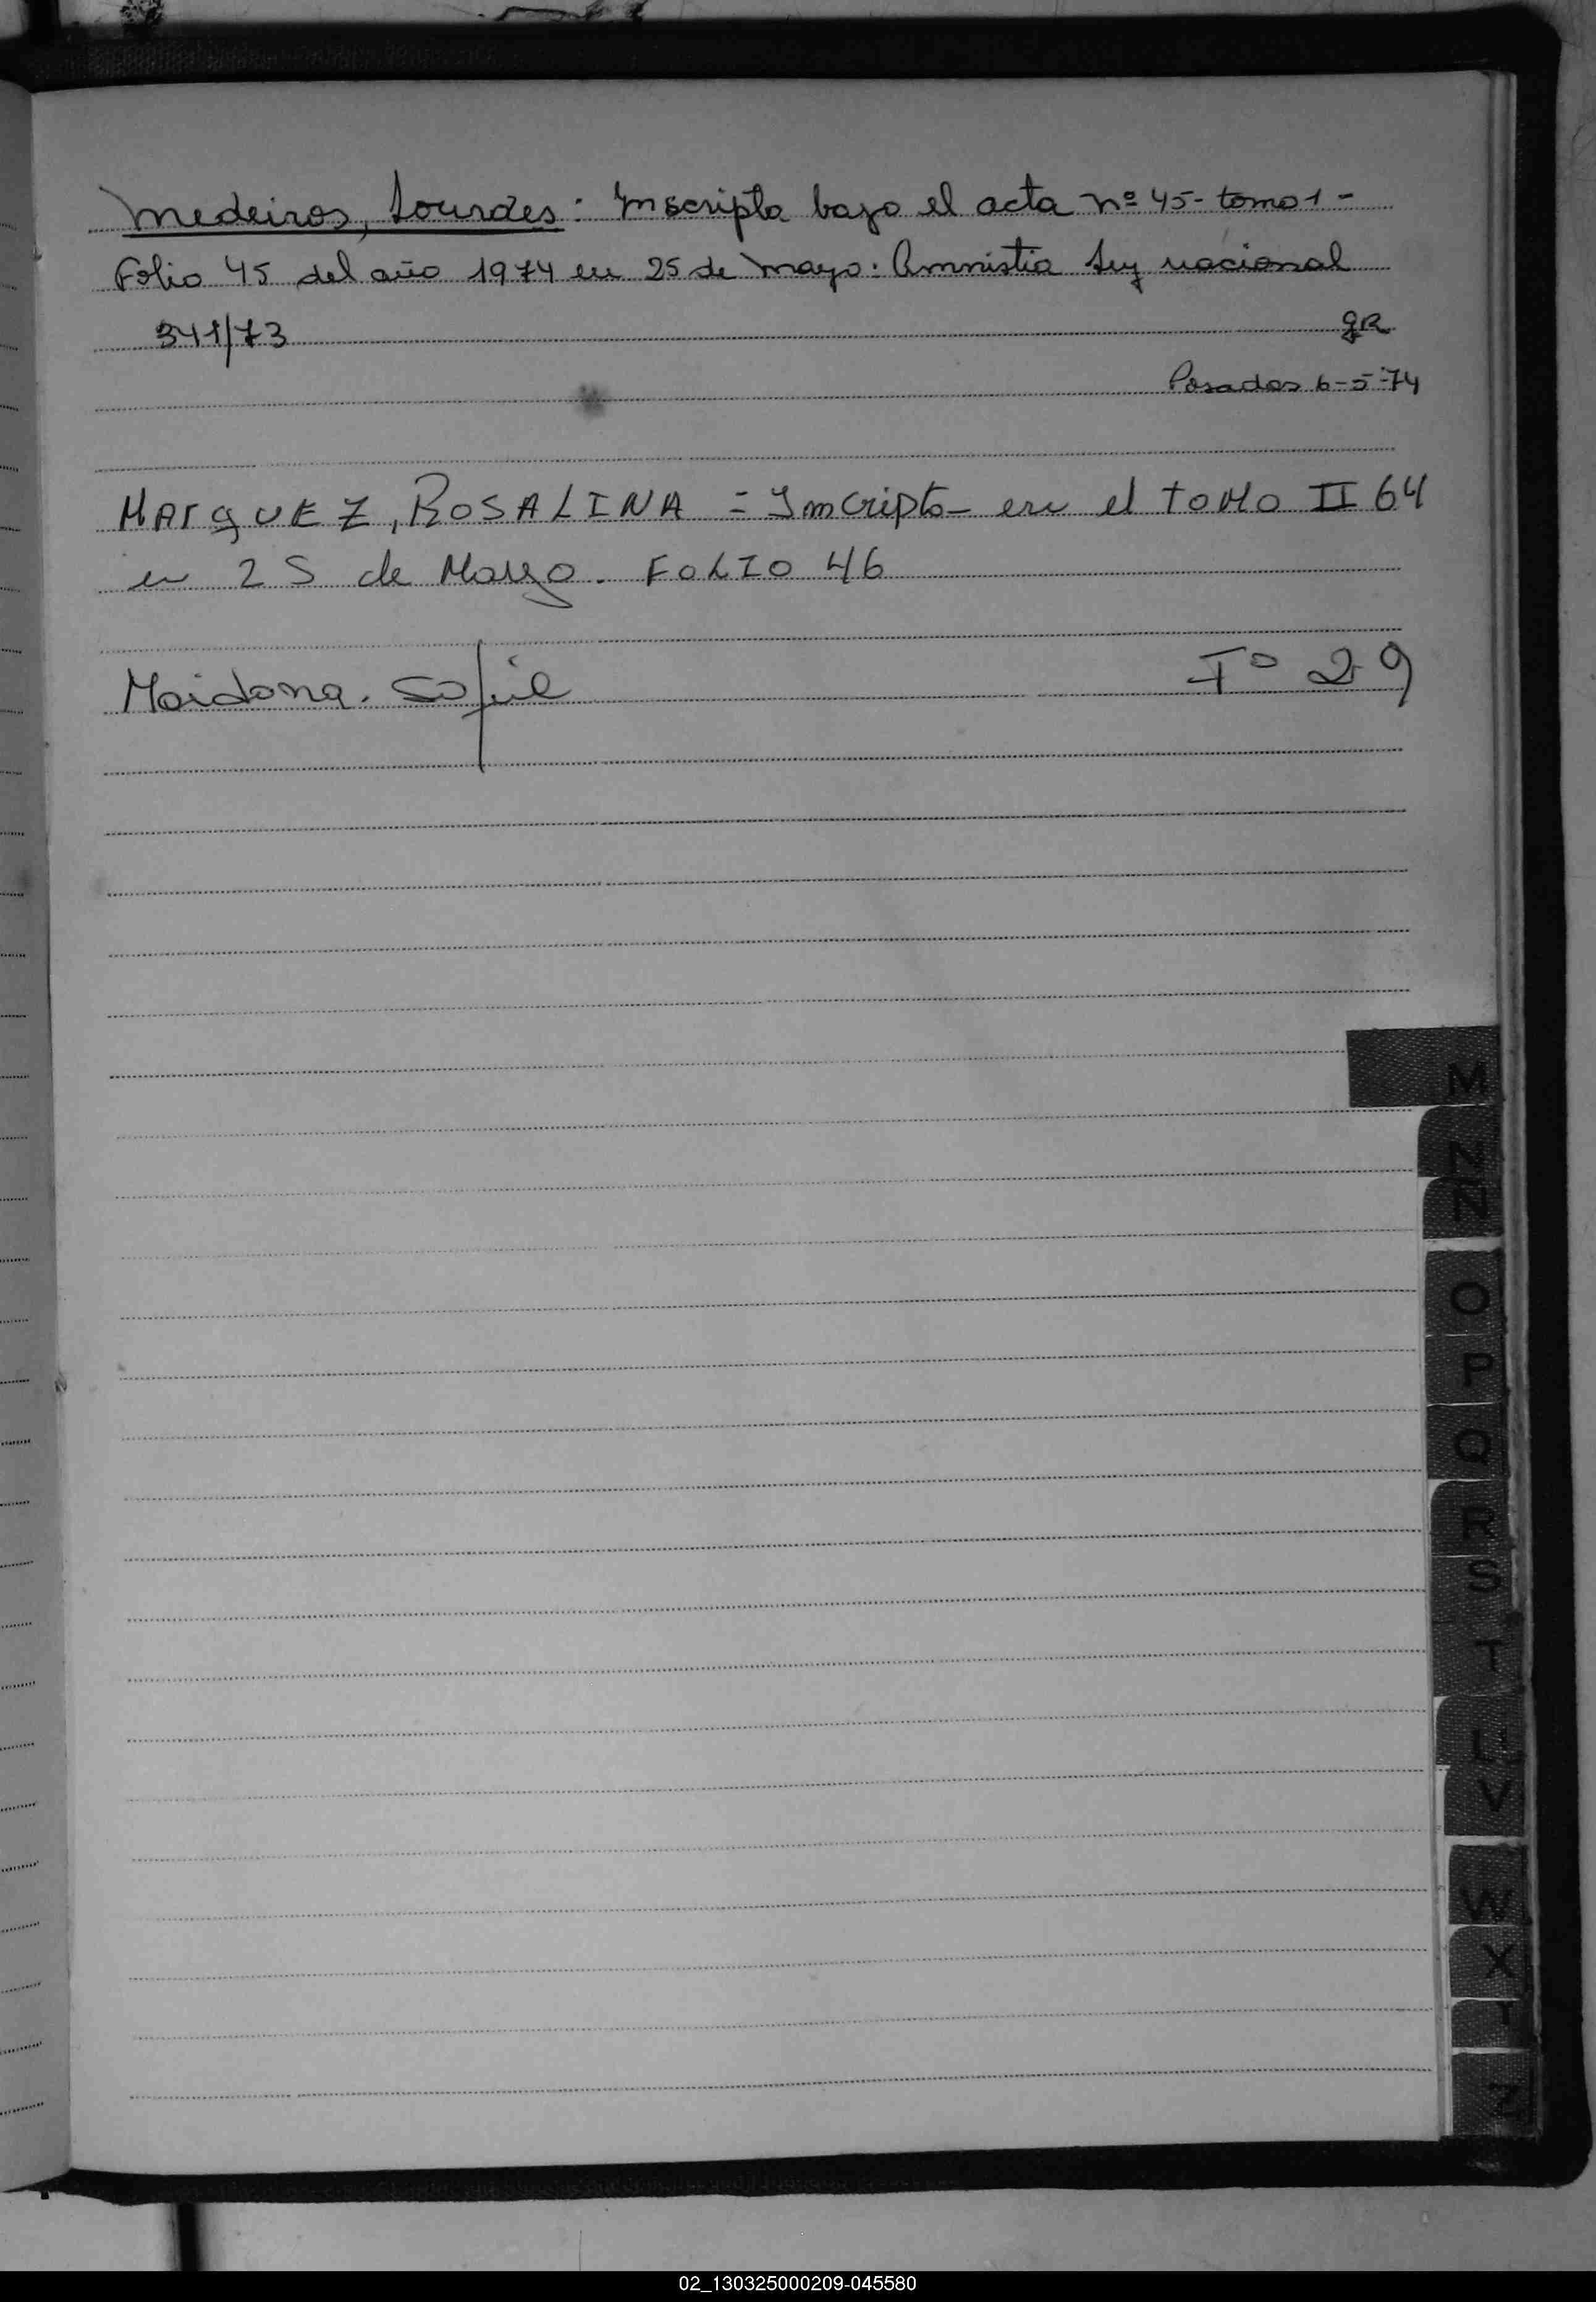 Medeiros, Lourdes: Inscripta bajo el acta nº 45- tomo 1-
Folio 45 del año 1974 en 25 de mayo: Amnistia Ley nacional
341/73
gR
Posadas 6-5-74
MArqUEZ, ROSALINA = Imcripta- en el toMo II 64
en 25 de Mayo. FOLIO 46
Maidana. Sofie
Tº 29
M
N
Ñ
O
P
Q
R
S
T
U
V
W
X
Z
02_130325000209-045580